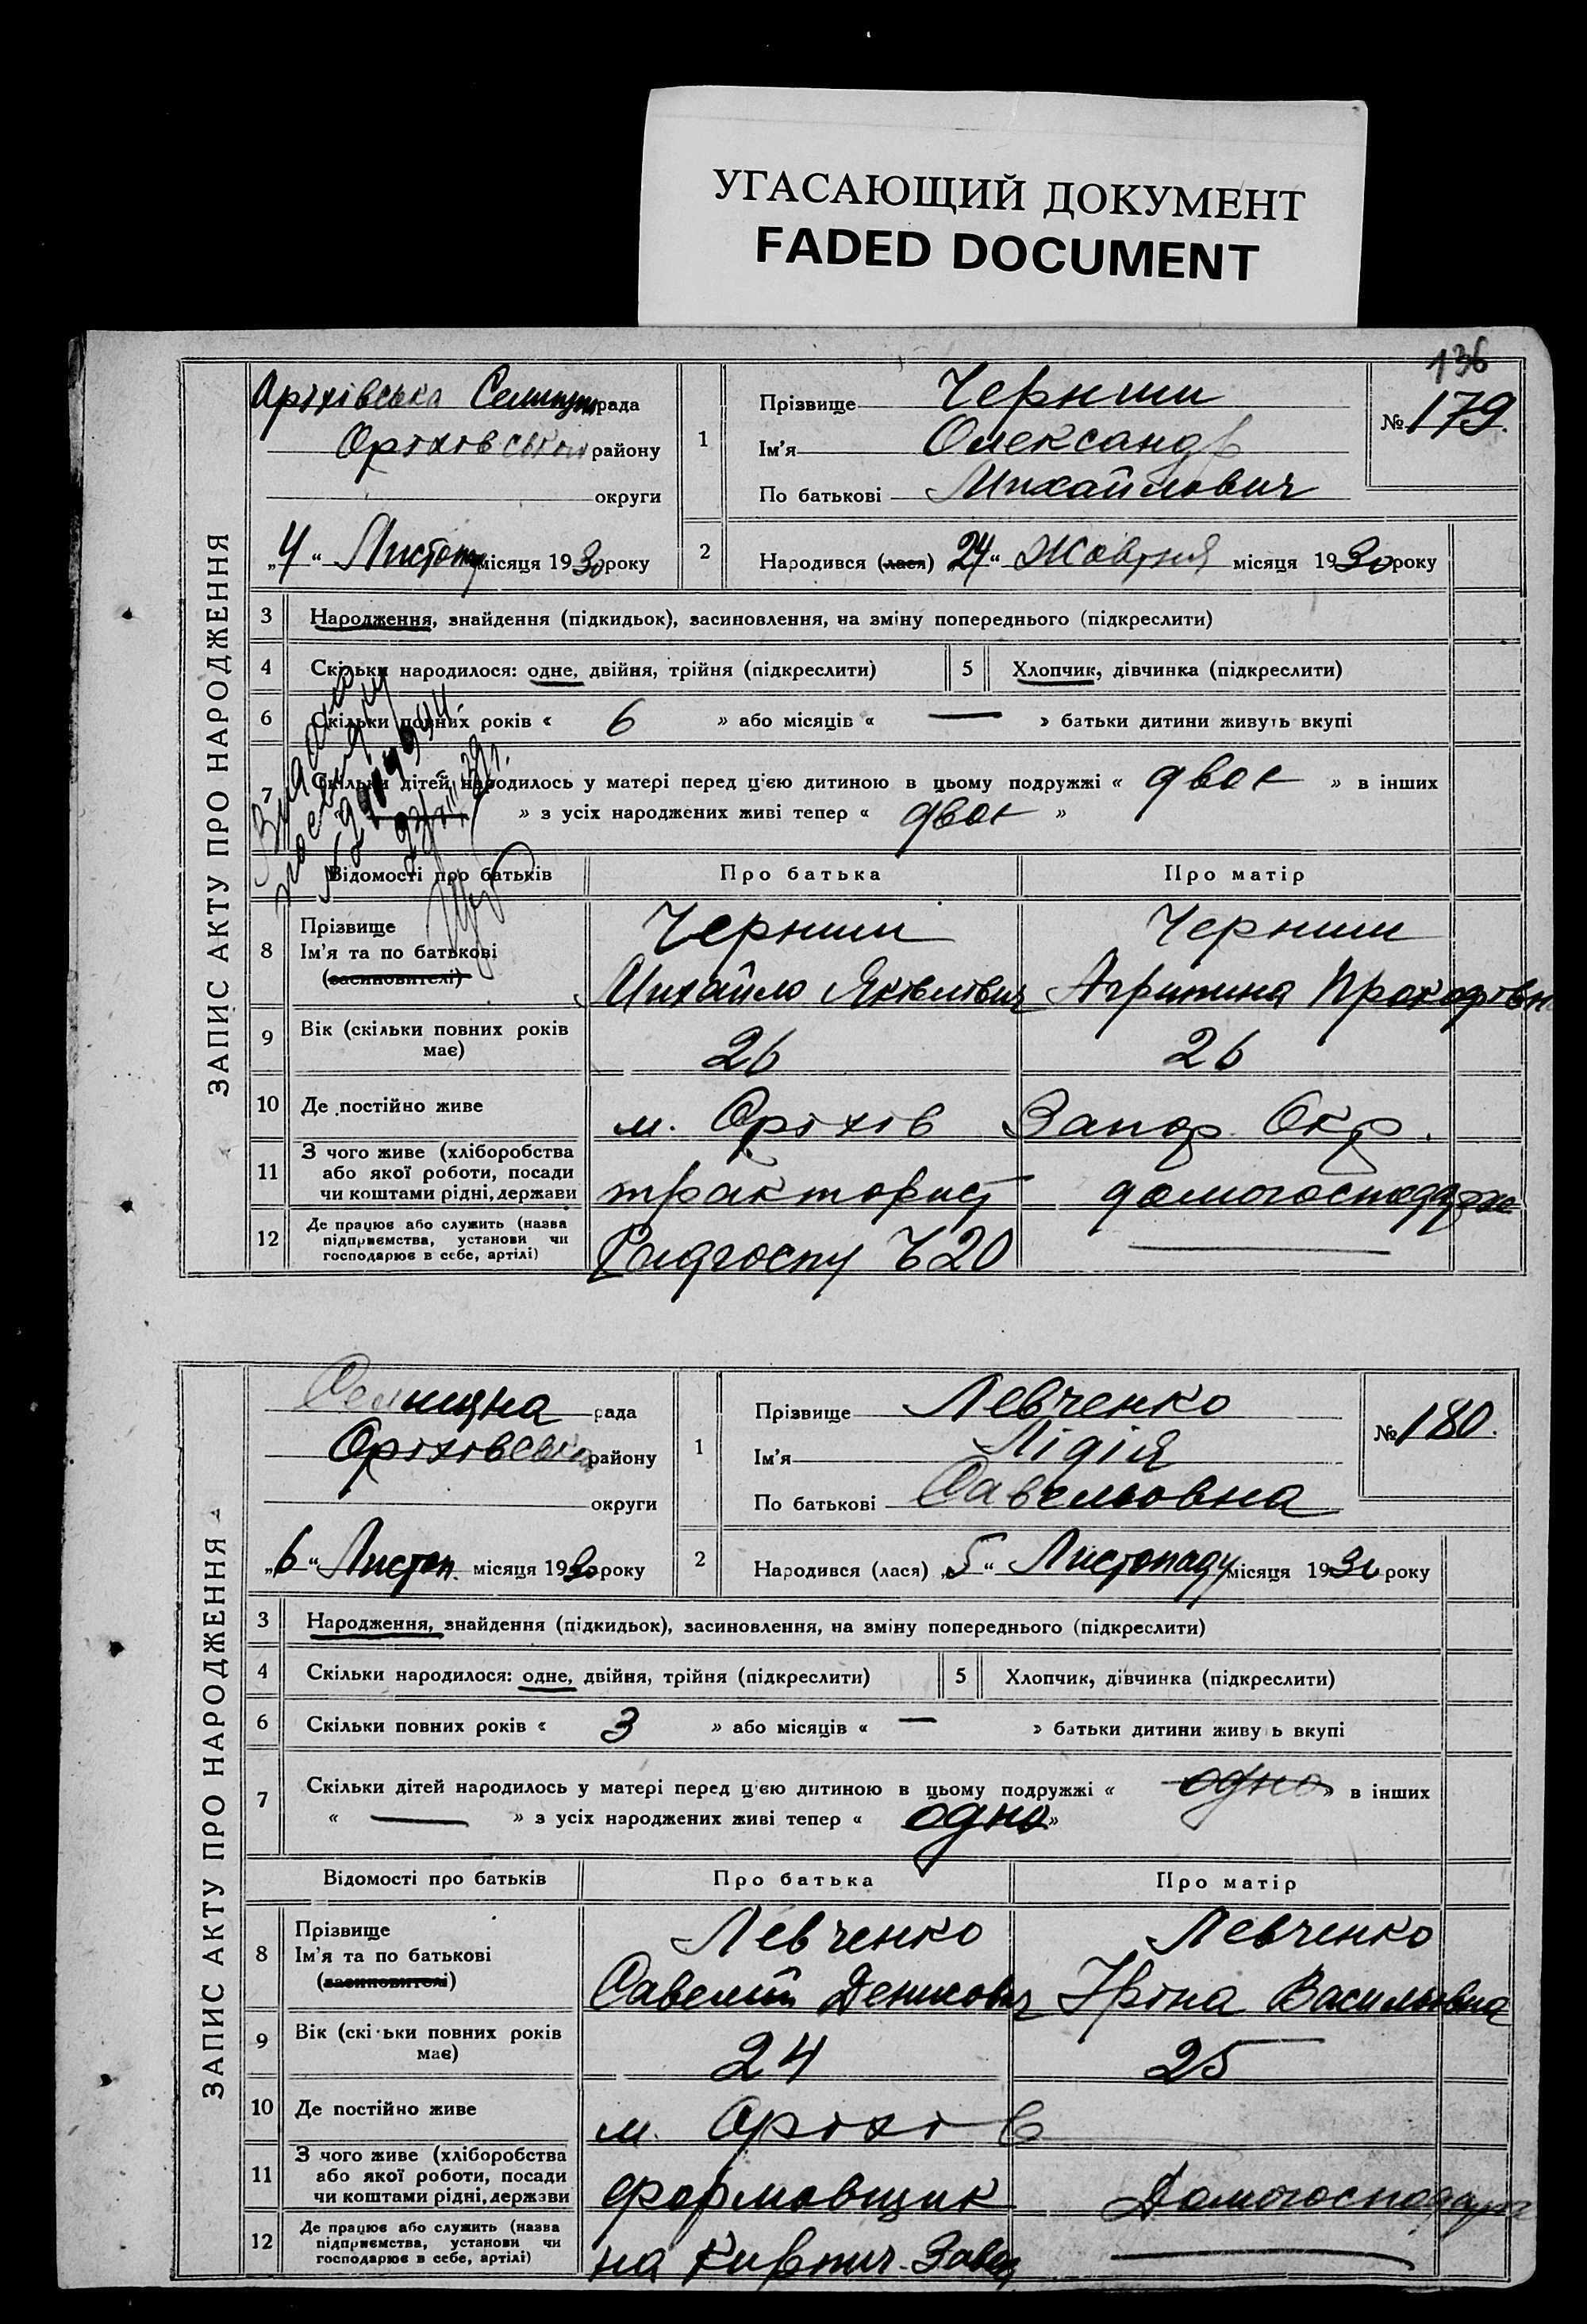 УГАСАЮЩИЙ ДОКУМЕНТ
FADED DOCUMENT
136
ЗАПИС АКТУ ПРО НАРОДЖЕННЯ
Оріхівська Селищна рада
Оріхівського району
округи
„4“ Листопад місяця 1930 року
1
Прізвище Черниш
Ім'я Олександр
По батькові Михайлович
№ 179.
2 Народився (лася) 24“ Жовтня місяця 1930 року
3 Народження, знайдення (підкидьок), засиновлення, на зміну попереднього (підкреслити)
4 Скільки народилося: одне, двійня, трійня (підкреслити) 5 Хлопчик, дівчинка (підкреслити)
6 Скільки повних років « 6 » або місяців « — » батьки дитини живуть вкупі
7 Скільки дітей народилось у матері перед цією дитиною в цьому подружжі « двоє » в інших
» з усіх народжених живі тепер « двоє »
Відомості про батьків Про батька Про матір
8 Прізвище Черниш Черниш
Ім'я та по батькові Михайло Яківлевич
(засиновителі)
9 Вік (скільки повних років має) 26 26
10 Де постійно живе м. Оріхів Запор. Окр.
11 З чого живе (хліборобства
або якої роботи, посади
чи коштами рідні, держави тракторист домогосподарка
12 Де працює або служить (назва
підприємства, установи чи
господарює в себе, артілі) Радгоспу —
ЗАПИС АКТУ ПРО НАРОДЖЕННЯ
Селищна рада
Оріхівського району
округи
„6“ Листоп. місяця 1930 року
1
Прізвище Левченко
Ім'я Лідія
По батькові Савельовна
№ 180.
2 Народився (лася) „5“ Листопаду місяця 1930 року
3 Народження, знайдення (підкидьок), засиновлення, на зміну попереднього (підкреслити)
4 Скільки народилося: одне, двійня, трійня (підкреслити) 5 Хлопчик, дівчинка (підкреслити)
6 Скільки повних років « 3 » або місяців « — » батьки дитини живу ь вкупі
7 Скільки дітей народилось у матері перед цією дитиною в цьому подружжі « одно » в інших
« — » з усіх народжених живі тепер « одно »
Відомості про батьків Про батька Про матір
8 Прізвище Левченко Левченко
Ім'я та по батькові Савелій Денисович Іріна Васильовна
(засиновителі)
9 Вік (скі ьки повних років має) 24 25
10 Де постійно живе м. Оріхів
11 З чого живе (хліборобства
або якої роботи, посади
чи коштами рідні, держави формовщик Домогосподарка
12 Де працює або служить (назва
підприємства, установи чи
господарює в себе, артілі) на Кирпич. Завод —